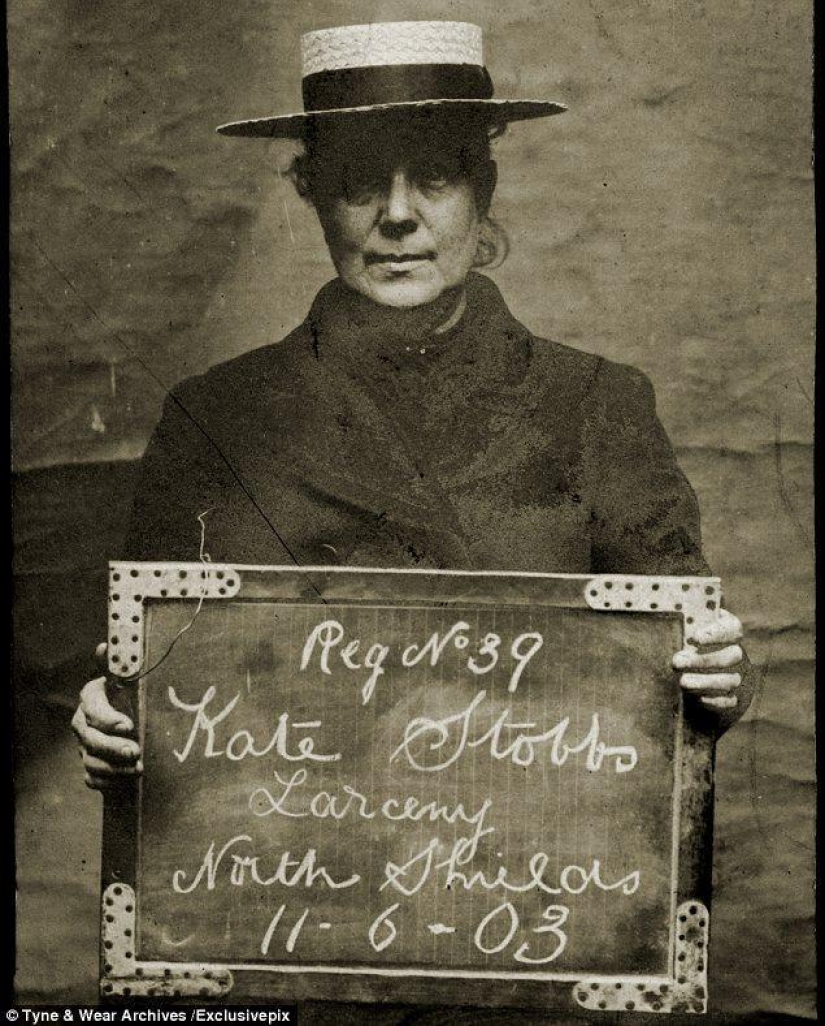 Reg No 39
Kate Stobbs
Larceny
North Shields
11-6-03
© Tyne & Wear Archives /Exclusivepix